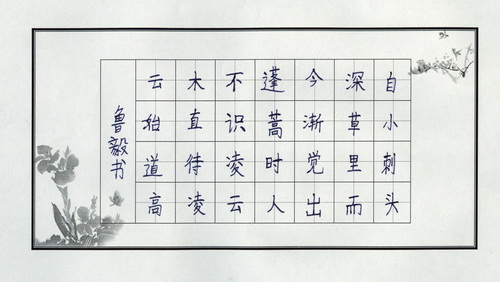 自小刺头
深草里而
今渐觉出
蓬蒿时人
不识凌云
木直待凌
云始道高
鲁毅书